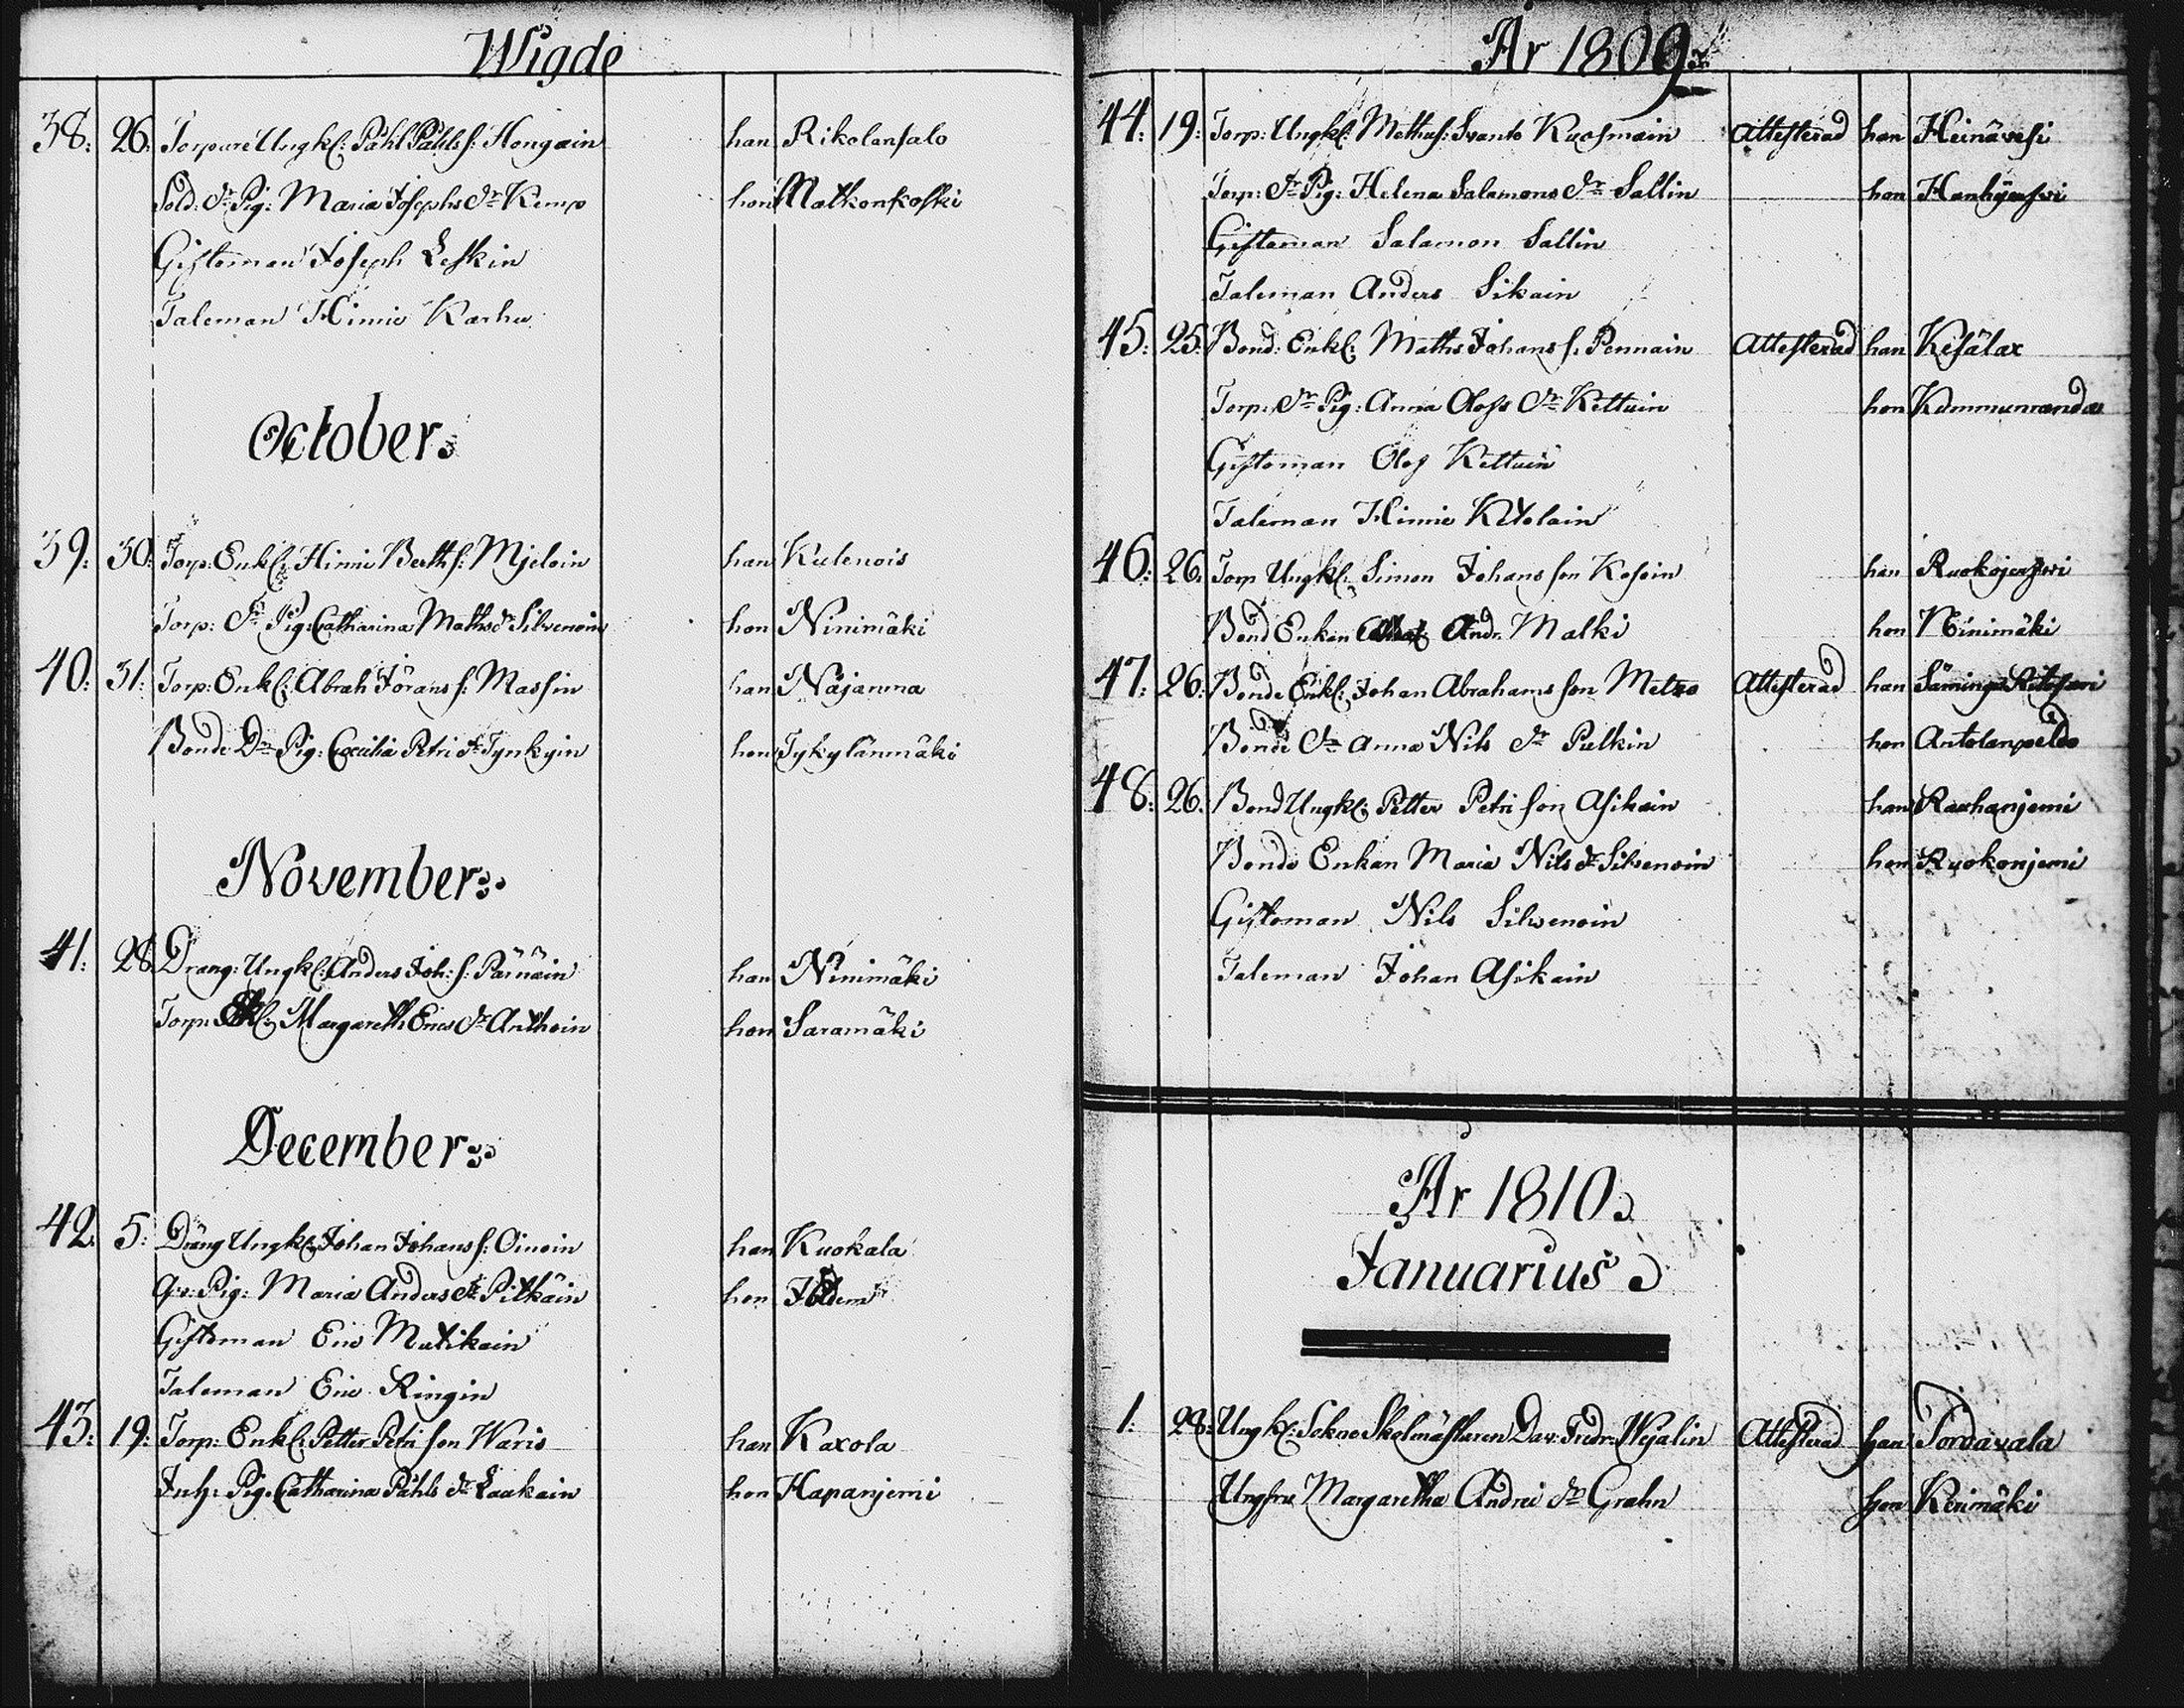 Wigde
38: 26: Torpare Ungkl: Påhl Påhls s: Hongain han Rikolansalo
Sold: dr Pig: Maria Josephs dr Kemp hon Matkonkoski
Giftoman Joseph Leskin
Taleman Hinric Karhu
October:
39: 30: Torp: Enkl: Hinric Berth s: Mjeloin han Kulenois
Torp: dr Pig: Catharina Maths dr Silvenoin hon Ninimäki
40: 31: Torp: Enkl: Abrah Jörans s: Massin han Näjänma
Bonde Dr Pig: Cæcilia Petri dr Tynkyin hon Tykylänmäki
November:
41: 28 Dräng: Ungkl: Anders Joh: s: Pärnäin han Ninimäki
Torp: Margareth Erics dr Anthoin hon Saramäki
December:
42 5: Dräng Ungkl: Johan Johans s: Oinoin han Kuokala
Pig: Maria Anders dr Pitkäin hon Ibidem
Giftoman Eric Mutikain
Taleman Eric Ringin
43: 19: Torp: Enkl: Petter Petri son Waris han Kaxola
Inh: Pig: Catharina Påhls dr Laakain hon Hapanjemi
År 1809:
44: 19: Torp: Ungkl: Mathus: Svanto Kuosmain Attesterad han Heinävesi
Torp: dr Pig: Helena Salamons dr Sallin hon Hanhijerfvi
Giftoman Salamon Sallin
Taleman Anders Sikain
45: 25: Bond: Enkl: Maths Johans s: Pennain Attesterad han Kesälax
Torp: dr Pig: Anna Olofs dr Kettuin hon Kummunranda
Giftoman Olof Kettuin
Taleman Hinric Ketolain
46: 26: Torp Ungkl: Simon Johans son Kosoin han Ruokojerfvi
Bond Enkan Andr. Malki hon Ninimäki
47: 26: Bonde Enkl: Johan Abrahams son Metzo Attesterad han Säminge Ritosari
Bonde dr Anna Nils dr Pulkin hon Antolanpeldo
48: 26: Bond Ungkl: Petter Petri son Asikain han Rauhanjemi
Bonde Enkan Maria Nils dr Silvenoin hon Ruokonjemi
Giftoman Nils Silvenoin
Taleman Johan Asikain
År 1810:
Januarius:
1: 28: Ungkl: Sokne Skolmästaren Dav: Fredr: Wejalin Attesterad han Sordavala
Ungfru Margaretha Andrei dr Grahn hon Kerimäki